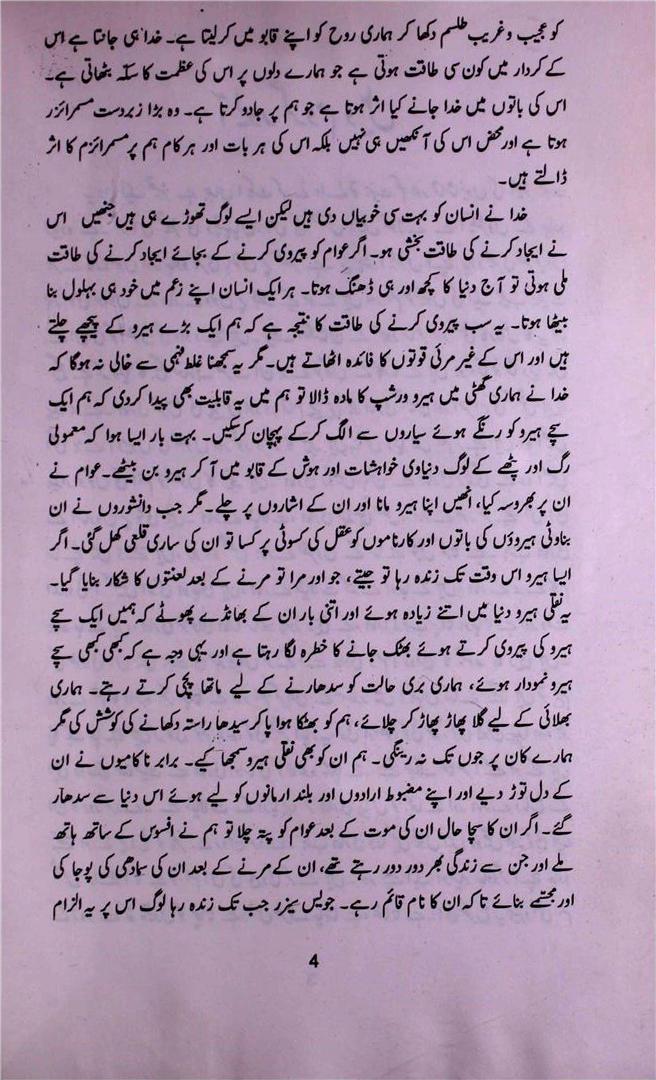 کو عجیب و غریب طلسم دکھا کر ہماری روح کو اپنے قابو میں کر لیتا ہے۔ خدا ہی جانتا ہے اس
کے کردار میں کون سی طاقت ہوتی ہے جو ہمارے دلوں پر اس کی عظمت کا سکّہ بٹھاتی ہے۔
اس کی باتوں میں خدا جانے کیا اثر ہوتا ہے جو ہم پر جادو کرتا ہے۔ وہ بڑا زبردست مسمرائزر
ہوتا ہے اور محض اس کی آنکھیں ہی نہیں بلکہ اس کی ہر بات اور ہر کام ہم پر مسمرائزم کا اثر
ڈالتے ہیں۔
خدا نے انسان کو بہت سی خوبیاں دی ہیں لیکن ایسے لوگ تھوڑے ہی ہیں جنھیں اس
نے ایجاد کرنے کی طاقت بخشی ہو۔ اگر عوام کو پیروی کرنے کے بجائے ایجاد کرنے کی طاقت
ملی ہوتی تو آج دنیا کا کچھ اور ہی ڈھنگ ہوتا۔ ہر ایک انسان اپنے زعم میں خود ہی بہلول بنا
بیٹھا ہوتا۔ یہ سب پیروی کرنے کی طاقت کا نتیجہ ہے کہ ہم ایک بڑے ہیرو کے پیچھے چلتے
ہیں اور اس کے غیر مرئی قوتوں کا فائدہ اٹھاتے ہیں۔ مگر یہ سمجھنا غلط فہمی سے خالی نہ ہوگا کہ
خدا نے ہماری گھٹی میں ہیرو ورشپ کا مادہ ڈالا تو ہم میں یہ قابلیت بھی پیدا کر دی کہ ہم ایک
سچے ہیرو کو رنگے ہوئے سیاروں سے الگ کر کے پہچان کر سکیں۔ بہت بار ایسا ہوا کہ معمولی
رگ اور پٹھے کے لوگ دنیاوی خواہشات اور ہوش کے قابو میں آ کر ہیرو بن بیٹھے۔ عوام نے
ان پر بھروسہ کیا، انھیں اپنا ہیرو مانا اور ان کے اشاروں پر چلے۔ مگر جب دانشوروں نے ان
بناوٹی ہیروؤں کی باتوں اور کارناموں کو عقل کی کسوٹی پر کسا تو ان کی ساری قلعی کھل گئی۔ اگر
ایسا ہیرو اس وقت تک زندہ رہا تو جیتے، جو اور مرا تو مرنے کے بعد لعنتوں کا شکار بنایا گیا۔
یہ نقلی ہیرو دنیا میں اتنے زیادہ ہوئے اور اتنی بار ان کے بھانڈے پھوٹے کہ ہمیں ایک سچے
ہیرو کی پیروی کرتے ہوئے بھٹک جانے کا خطرہ لگا رہتا ہے اور یہی وجہ ہے کہ کبھی کبھی سچے
ہیرو نمودار ہوئے، ہماری بری حالت کو سدھارنے کے لیے ماتھا پچی کرتے رہتے۔ ہماری
بھلائی کے لیے گلا پھاڑ پھاڑ کر چلائے، ہم کو بھٹکا ہوا پا کر سیدھا راستہ دکھانے کی کوشش کی مگر
ہمارے کان پر جوں تک نہ رینگی۔ ہم ان کو بھی نقلی ہیرو سمجھا کیے۔ برابر ناکامیوں نے ان
کے دل توڑ دیے اور اپنے مضبوط ارادوں اور بلند ارمانوں کو لیے ہوئے اس دنیا سے سدھار
گئے۔ اگر ان کا سچا حال ان کی موت کے بعد عوام کو پتہ چلا تو ہم نے افسوس کے ساتھ ہاتھ
ملے اور جن سے زندگی بھر دور دور رہتے تھے، ان کے مرنے کے بعد ان کی سمادھی کی پوجا کی
اور مجسمے بنائے تاکہ ان کا نام قائم رہے۔ جولیس سیزر جب تک زندہ رہا لوگ اس پر یہ الزام
4